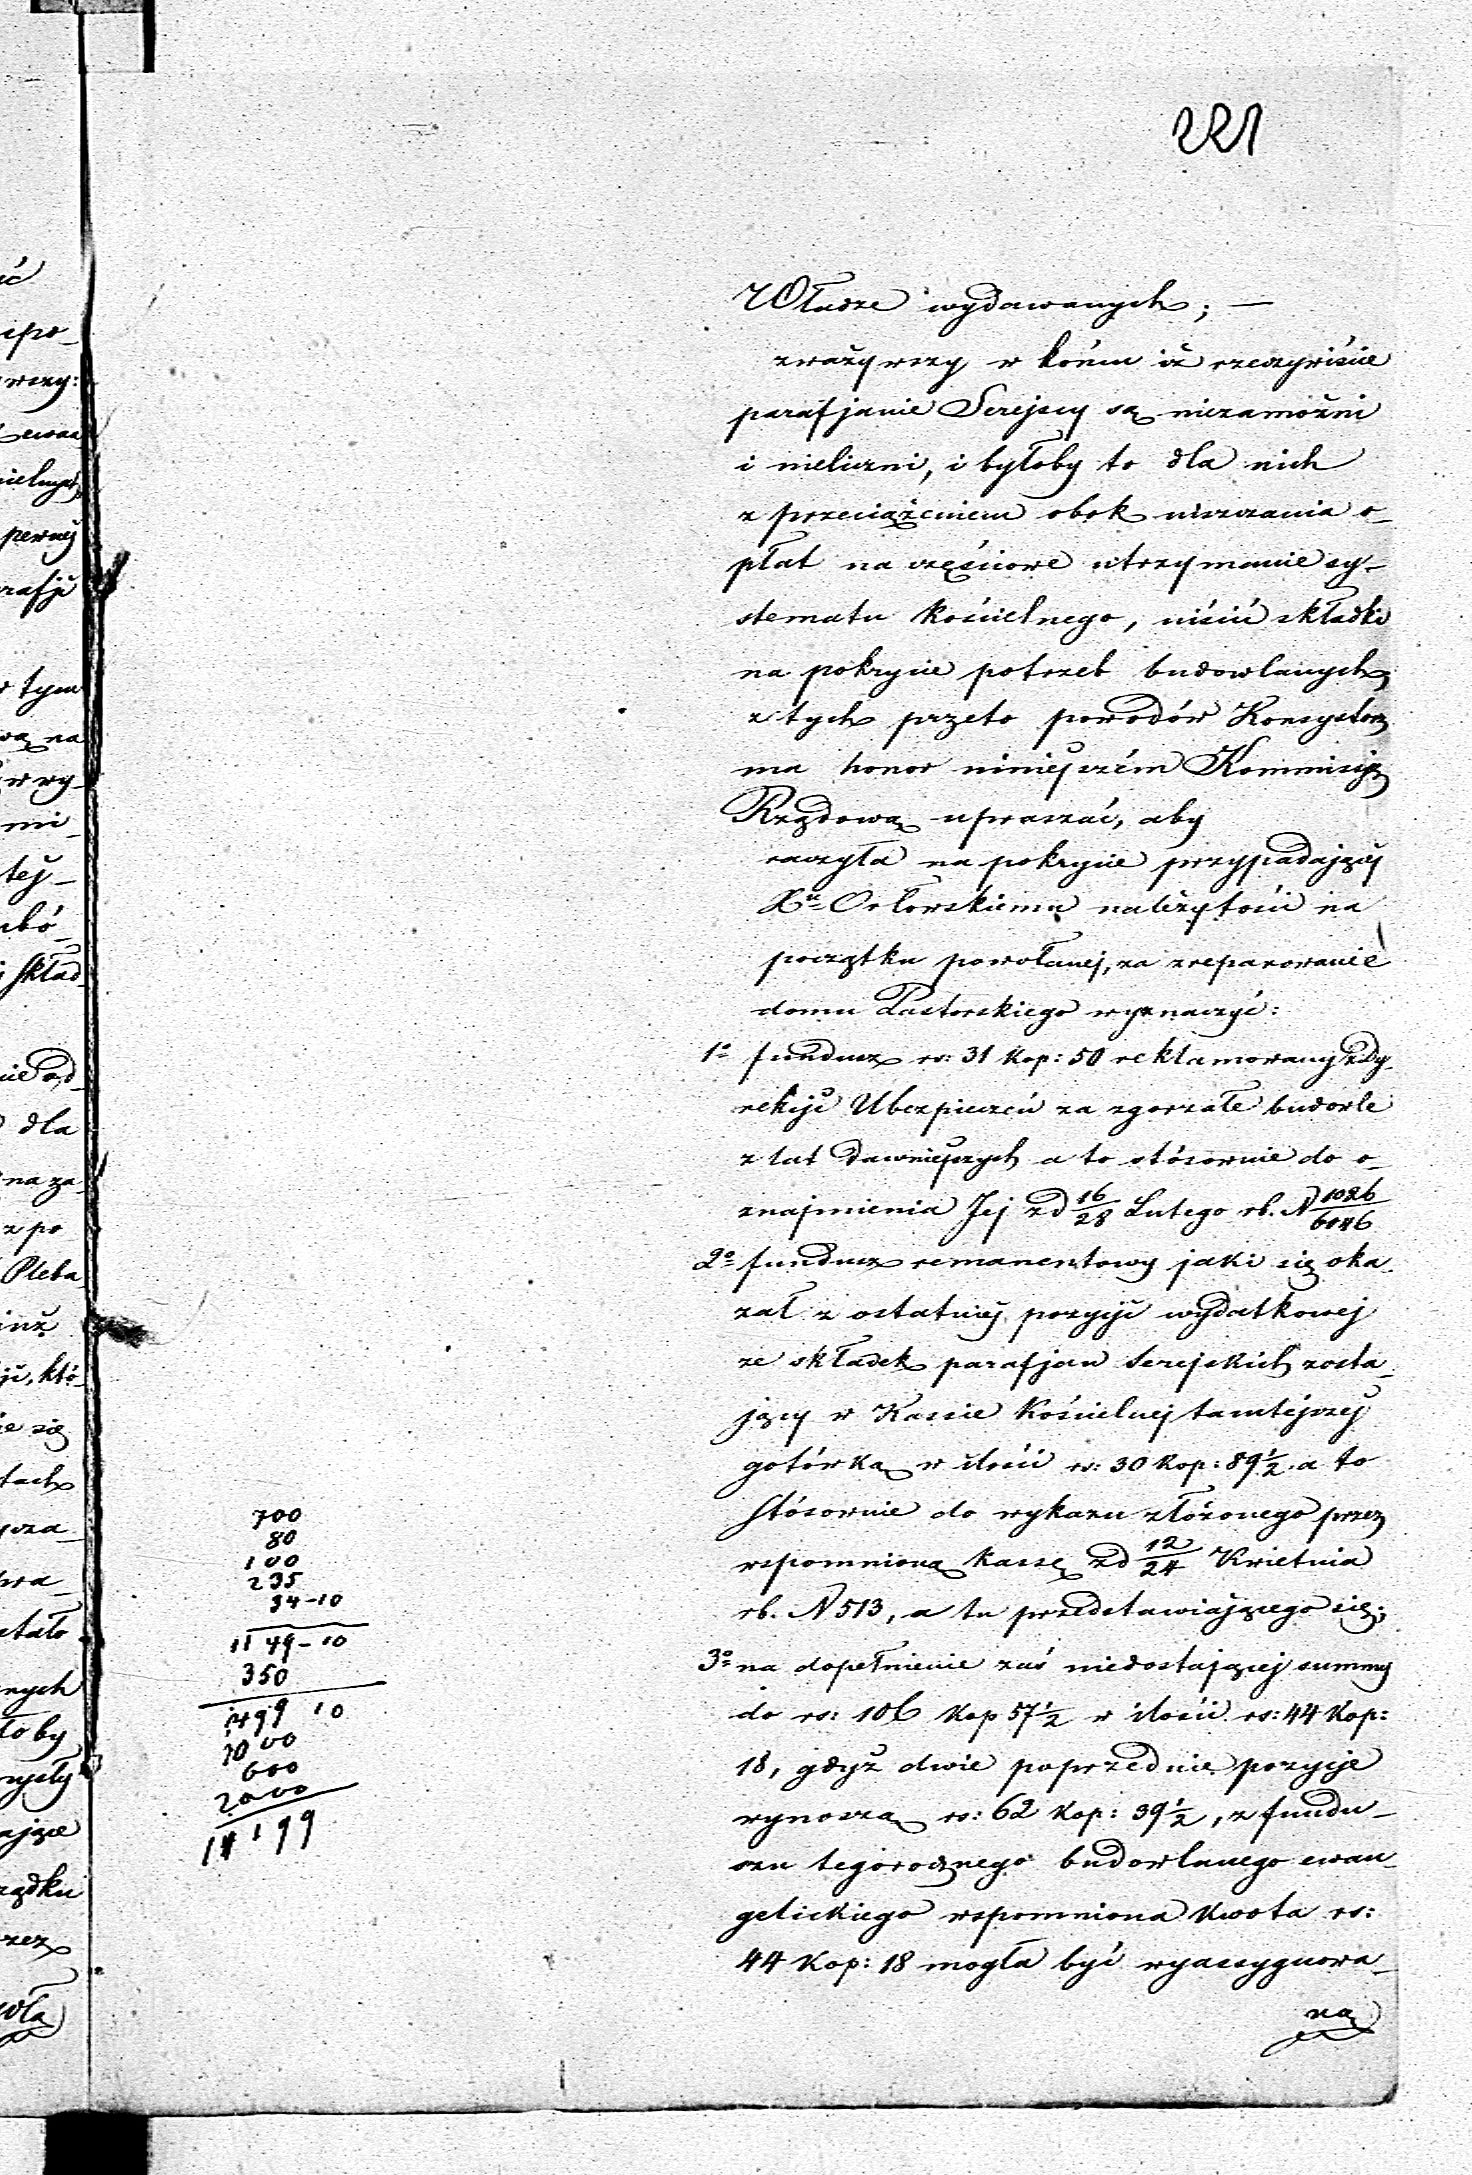 221
Władze wydawanych; —
zważywszy w końcu iż rzeczywiście
parafjanie Serejscy są niezamożni
i nieliczni, i byłoby to dla nich
z przeciążeniem obok uiszczania o-
płat na częściowe utrzymanie sy-
stematu kościelnego, uiścić składki
na pokrycie potrzeb budowlanych,
z tych przeto powodów Konsystorz
ma honor niniejszém Kommisiją
Rządową upraszać, aby
raczyła na pokrycie przypadającej
Xu Orłowskiemu należytości na
początku powołanej, za zreparowanie
domu Pastorskiego wyznaczyć:
1o fundusz rs: 31 kop: 50 reklamowany z Dy-
rekcji Ubezpieczeń za zgorzałe budowle
z lat dawniejszych a to stósownie do o-
znajmienia Jej z d 16/28 Lutego rb. N 1026/6046
2o fundusz remanentowy jaki się oka-
zał z ostatniej pozycji wydatkowej
ze składek parafjan Serejskich zosta-
jący w Kassie Kościelnej tamtejszej
gotówką w ilości rs: 30 kop: 89½ a to
Stósownie do wykazu złożonego przez
wspomnioną kassę z d 12/24 Kwietnia
rb. N 513, a tu przedstawiającego się;
3o na dopełnienie zaś niedostającej summy
do rs: 106 kop 57½ w ilości rs: 44 kop:
18, gdyż dwie poprzednie pozycje
wynoszą rs: 62 kop: 39½, z fundu-
szu tegorocznego budowlanego ewan-
gelickiego wspomniona kwota rs:
44 kop: 18 mogła być wyassygnowa-
na
700
80
100
235
34-10
1149-10
350
1499 10
1000
600
2000
199
ipo-
wszy:
pewnej
rafji
tym
na
wy-
mi-
tej-
skład-
dla
na za-
z po
Pleba
ji, któ-
się
tach
stało
nych
to by
ające
ządku
rzez